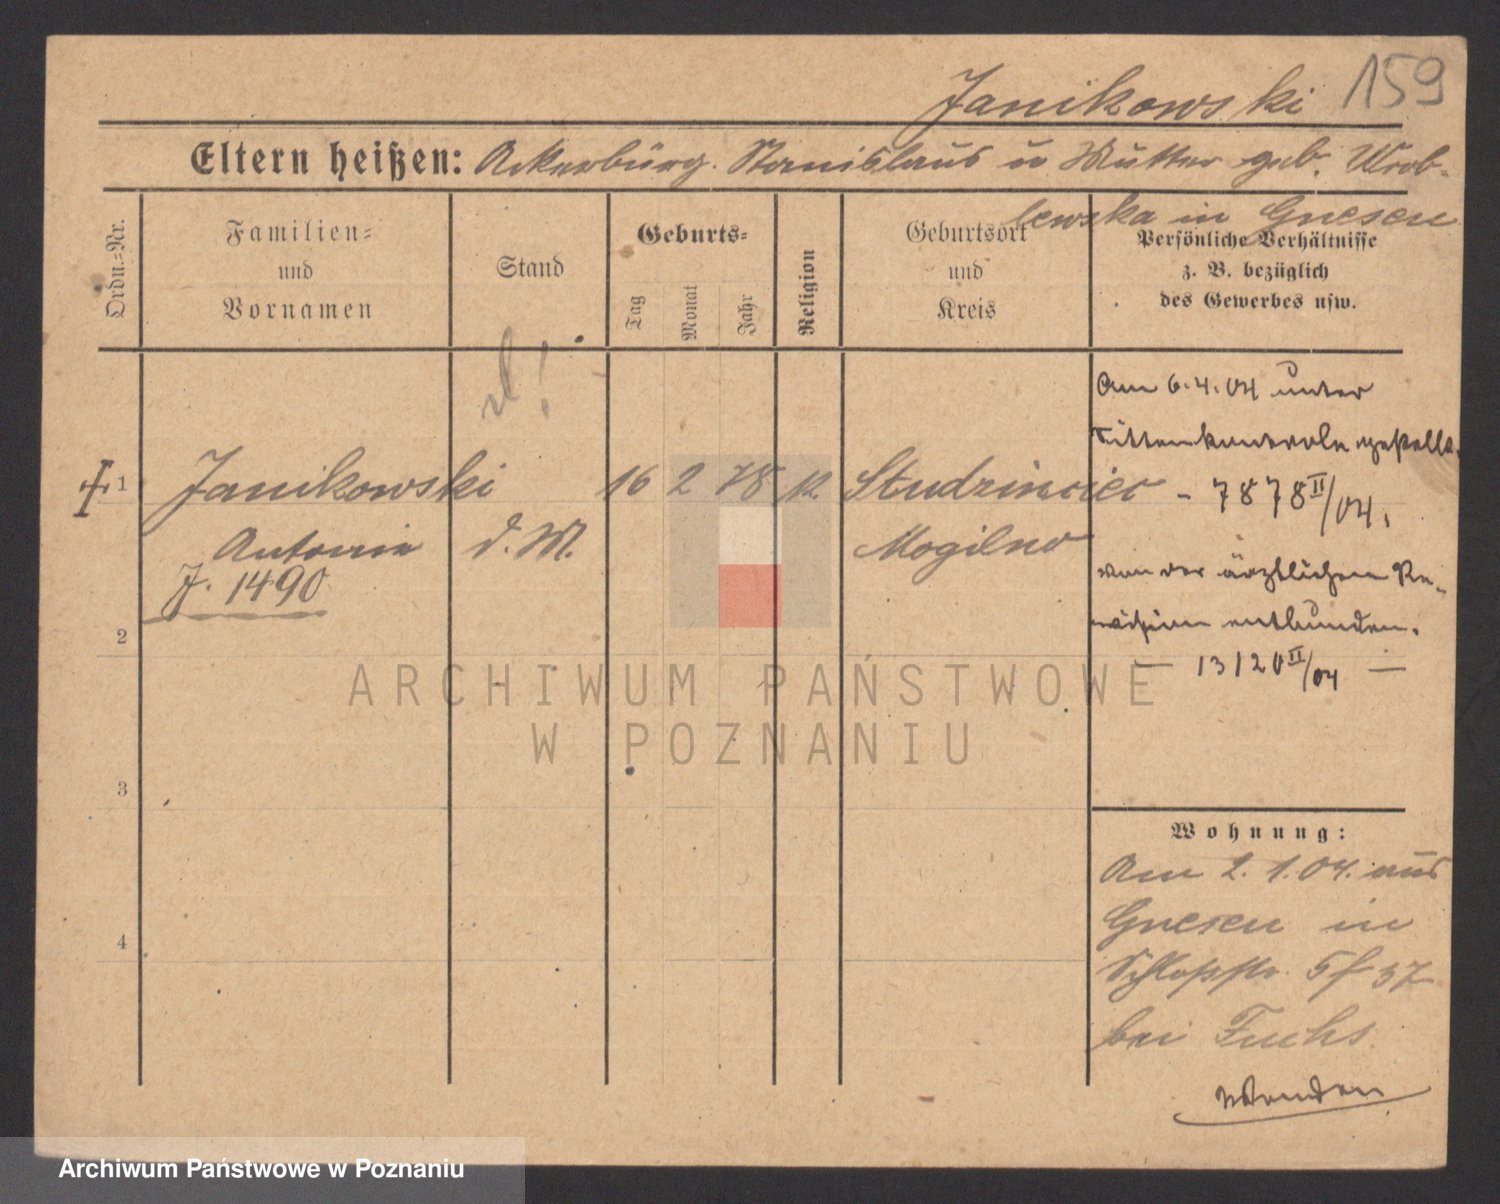 159
Janikowski
Eltern heißen: Ackerbürg. Stanislaus u Mutter geb. Wrob-
lewska in Gnesen
Ordn.-Nr.
Familien-
und
Vornamen
Stand
Geburts-
Tag
Monat
Jahr
Religion
Geburtsort
und
Kreis
Persönliche Verhältnisse
z. B. bezüglich
des Gewerbes usw.
1
Janikowski
Antonie
J. 1490
d. M.
16 2 78 k.
Mogilno
Am 6.4.04 unter
Sittenkontrole gestellt.
- 7878 II/04.
von der ärztlichen Re-
vision entbunden.
— 13120 II/04 —
2
3
4
Wohnung:
Am 2.1.04. aus
Gnesen in
Schloßstr. 5
bei Fuchs
Wenden
ARCHIWUM PAŃSTWOWE
W POZNANIU
Archiwum Państwowe w Poznaniu